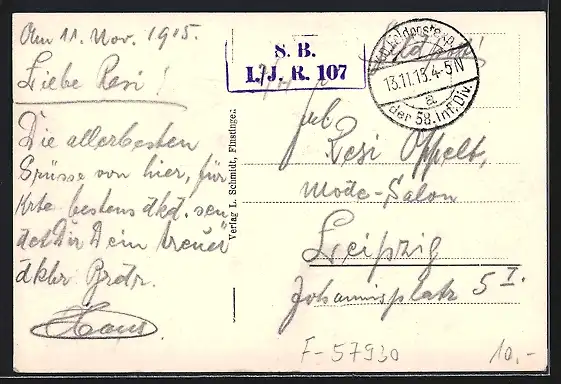 Am 11. Nov. 1915.
Liebe Resi!
Die allerbesten
Grüsse von hier, für
Krte bestens dkd. sen
det Dir Dein treuer
dkbr Brdr.
Hans
Verlag L. Schmidt, Finstingen
S. B.
I./J. R. 107
Feldpost!
13.11.15.4-5N
a
der 58. Inf. Div.
Frl.
Resi Oppelt,
Mode-Salon
Leipzig
Johannisplatz 5 I.
F-57930
10.-